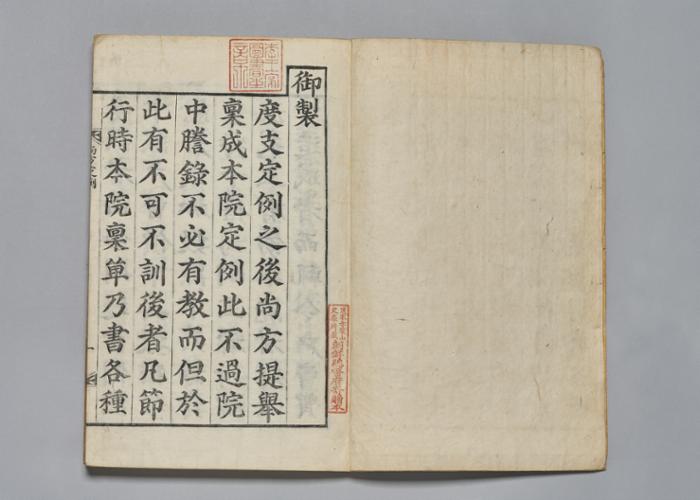 御製
度支定例之後尚方提擧
稟成本院定例此不過院
中謄錄不必有教而但於
此有不可不訓後者凡節
行時本院稟單乃書各種